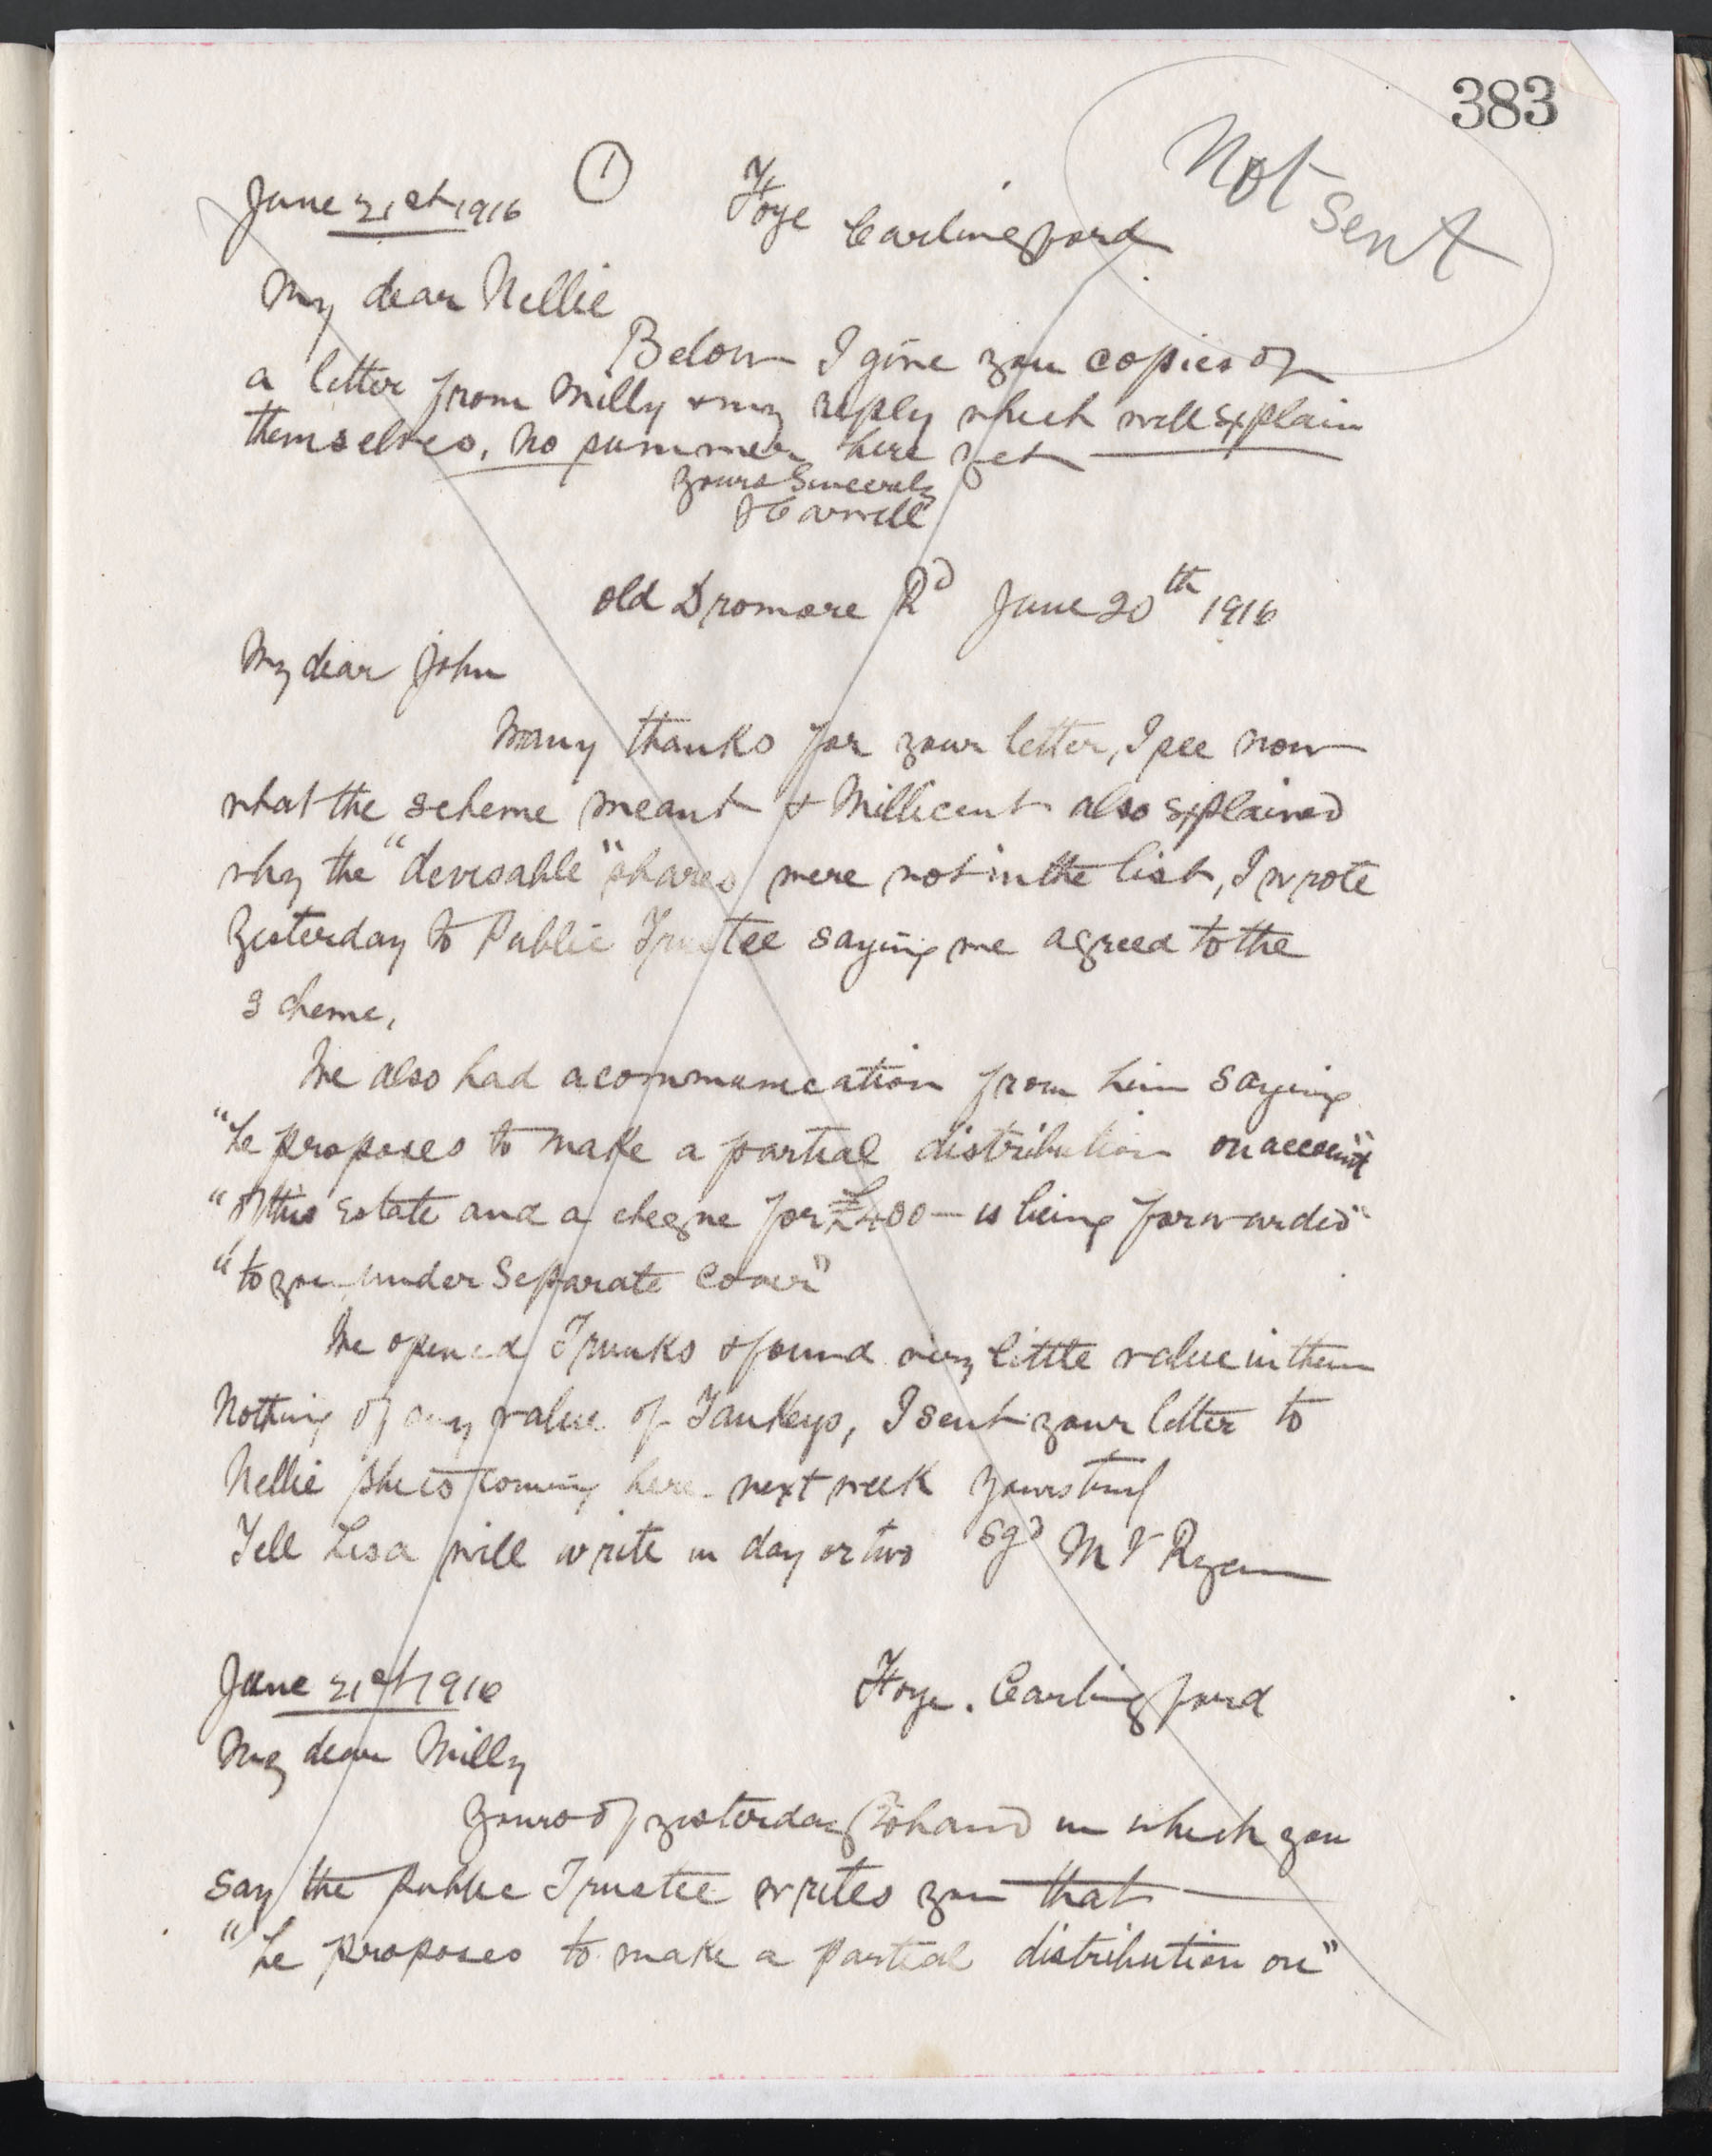 383
Not
sent
June 21st 1916 ① Foye Carlingford
My dear Nellie
Below I give you copies of
a letter from Milly & my reply which will explain
themselves, no summer here yet
Yours Sincerely
Old Dromore Rd June 20th 1916
My dear John
Many thanks for your letter, I see now
what the scheme meant & Millicent also explained
why the "devisable" shares were not in the list, I wrote
yesterday to Public Trustee saying we agreed to the
scheme,
We also had a communication from him saying
"he proposes to make a partial distribution on account"
"of this Estate and a cheque for £400 – is being forwarded"
"to you under separate cover"
We opened Trunks & found very little value in them
Nothing of any value of Yankeys, I sent your letter to
Nellie she is coming here next week yours truly
Tell Lisa will write in day or two Sgd M V Ryan
June 21st 1916 Foye. Carlingford
My dear Milly
Yours of yesterday to hand in which you
say the Public Trustee writes you that
"he proposes to make a partial distribution on"